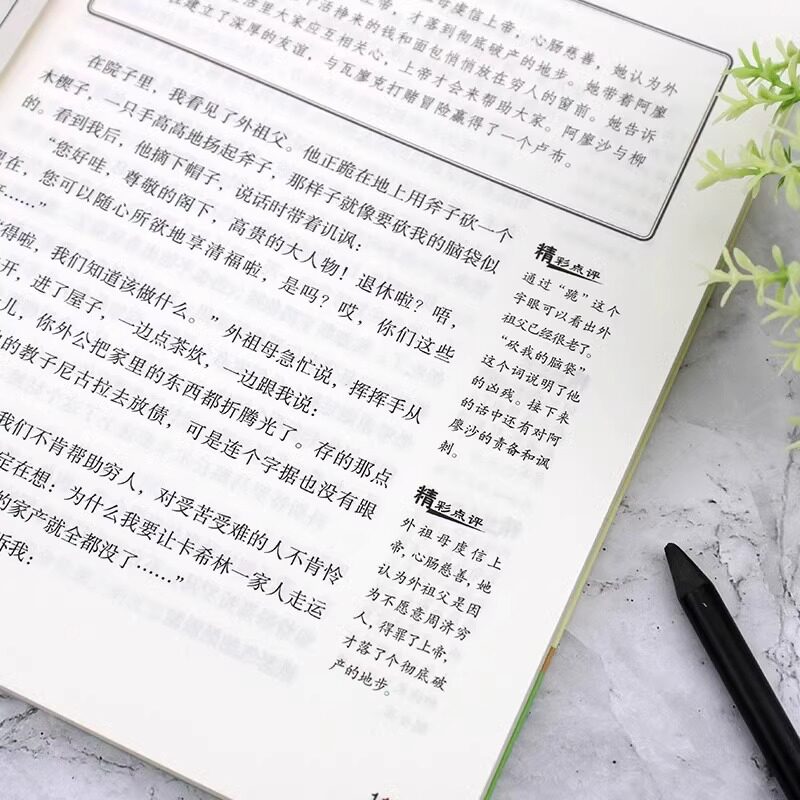 虔信上帝，心肠慈善，她认为外
上帝，才落到彻底破产的地步。她带着阿廖
挣来的钱和面包悄悄放在穷人的窗前。她告诉
生活里大家应互相关心，上帝才会来帮助大家。阿廖沙与柳
建立了深厚的友谊，与瓦廖克打赌冒险赢得了一个卢布。
在院子里，我看见了外祖父。他正跪在地上用斧子砍一个
木楔子，一只手高高地扬起斧子，那样子就像要砍我的脑袋似
的。看到我后，他摘下帽子，说话时带着讥讽：
“您好哇，尊敬的阁下，高贵的大人物！退休啦？唔，
现在，您可以随心所欲地享清福啦，是吗？哎，你们这些
……”
“得啦，我们知道该做什么。”外祖母急忙说，挥挥手从
开，进了屋子，一边点茶炊，一边跟我说：
儿，你外公把家里的东西都折腾光了。存的那点
的教子尼古拉去放债，可是连个字据也没有跟
我们不肯帮助穷人，对受苦受难的人不肯怜
在想：为什么我要让卡希林一家人走运
的家产就全都没了……”
诉我：
精彩点评
通过“跪”这个
字眼可以看出外
祖父已经很老了。
“砍我的脑袋”
这个词说明了他
的凶残。接下来
的话中还有对阿
廖沙的责备和讽
刺。
精彩点评
外祖母虔信上
帝，心肠慈善，她
认为外祖父是因
为不愿意周济穷
人，得罪了上帝，
才落了个彻底破
产的地步。